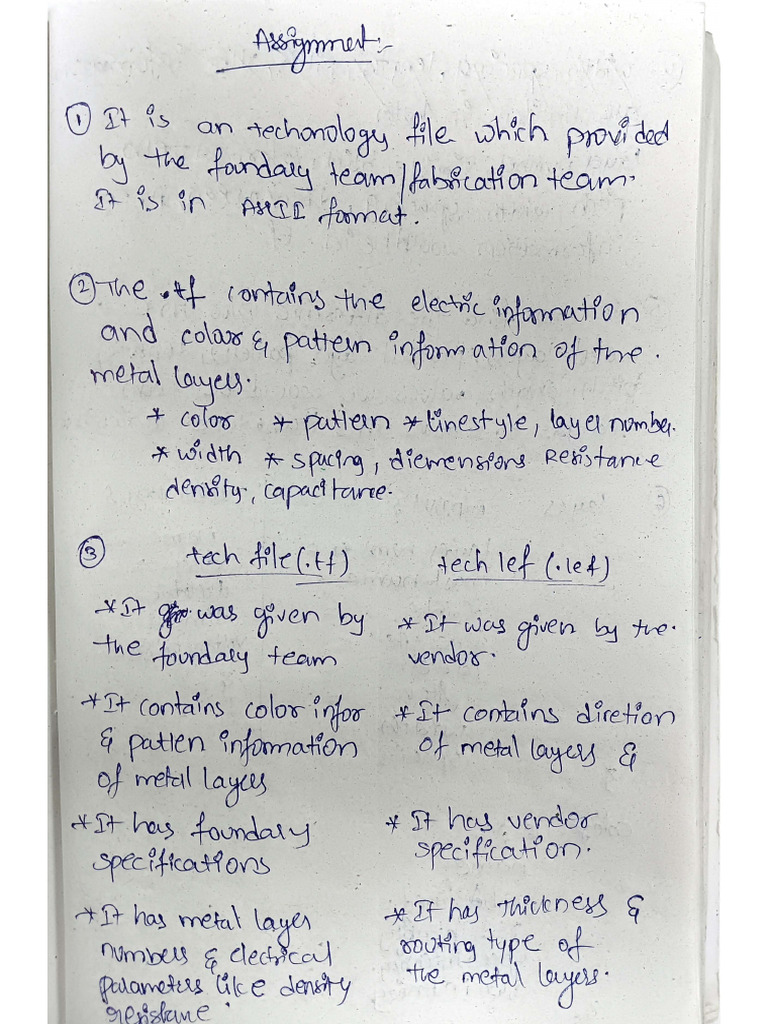 Assignmet:-
① It is an techonology file which provided
by the foundary team/fabrication team.
It is in ASCII format.
② The .tf contains the electric information
and colar & pattern information of the.
metal layers.
* color * pattern * linestyle, layer number.
* width * spacing, diemensions Resistance
density, capacitance.
③ tech file(.tf) tech lef (.lef)
* It was given by
the foundary team
* It was given by the.
vendor.
* It contains color infor
& patten information
of metal layers
* It contains diretion
of metal layers &
* It has foundary
specifications
* It has vendor
specification.
* It has metal layer
numbers & electrical
parameters like density
resistane.
* It has Thickness &
routing type of
the metal layers.